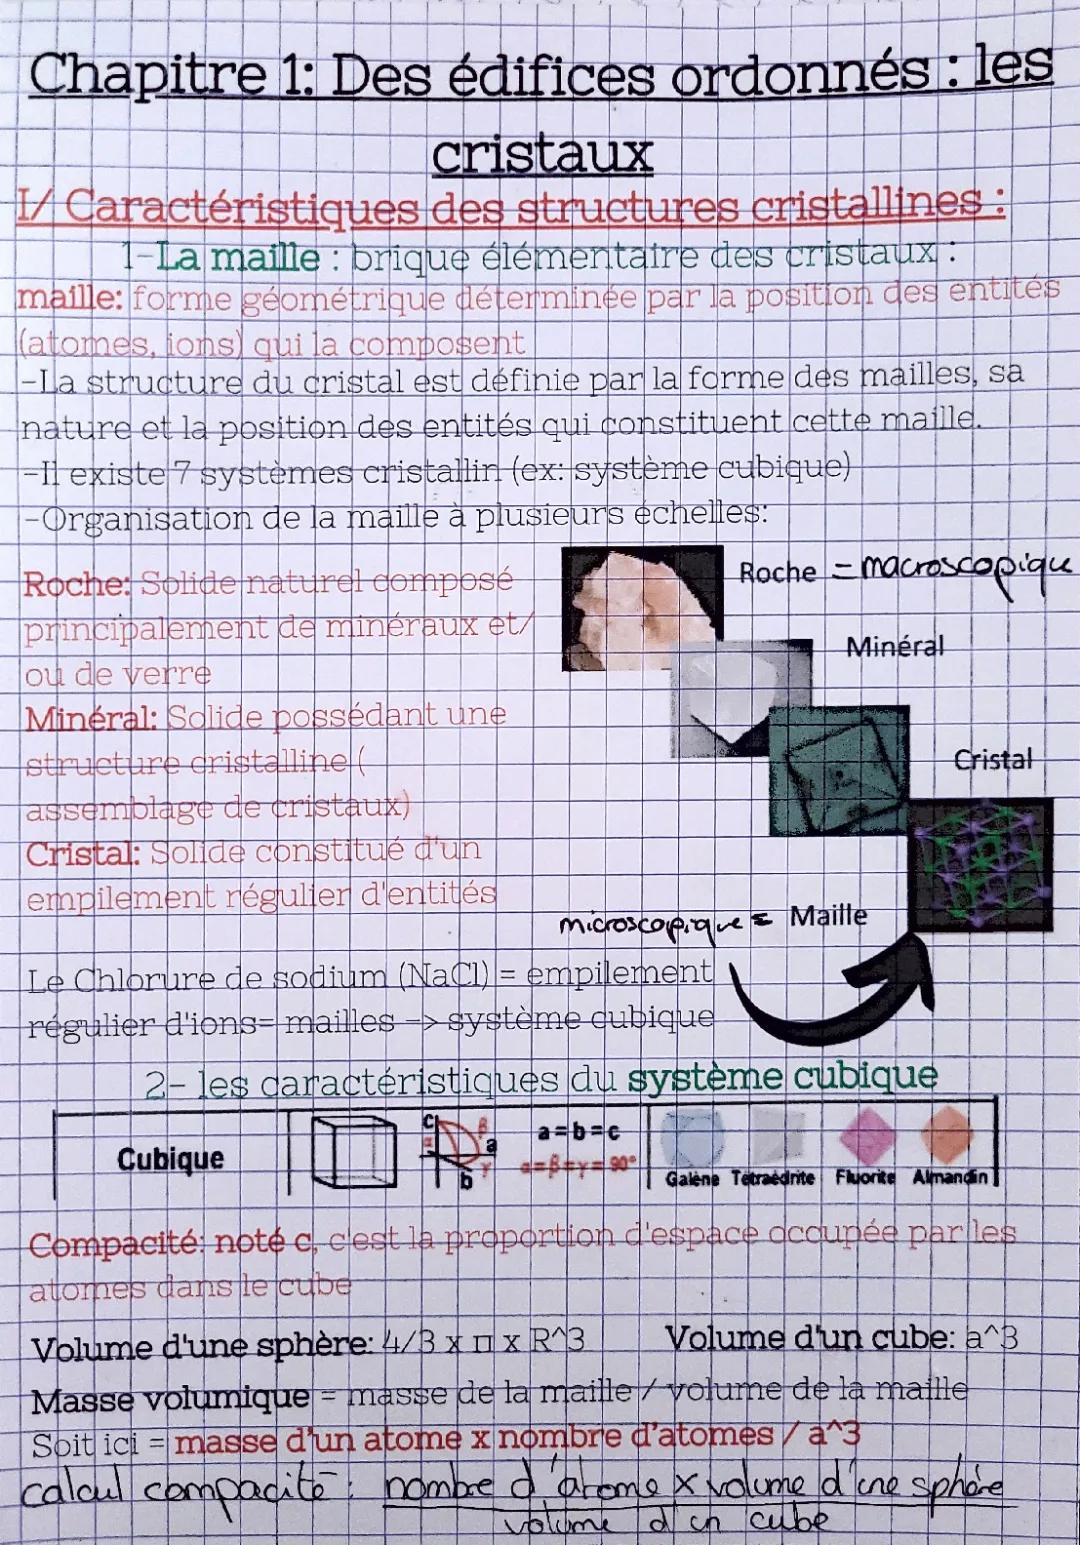 Chapitre 1: Des édifices ordonnés : les
cristaux
I/ Caractéristiques des structures cristallines :
1-La maille : brique élémentaire des cristaux :
maille: forme géométrique déterminée par la position des entités
(atomes, ions) qui la composent
-La structure du cristal est définie par la forme des mailles, sa
nature et la position des entités qui constituent cette maille.
-Il existe 7 systèmes cristallin (ex: système cubique)
-Organisation de la maille à plusieurs échelles:
Roche: Solide naturel composé
principalement de minéraux et/
ou de verre
Minéral: Solide possédant une
structure cristalline (
assemblage de cristaux)
Cristal: Solide constitué d'un
empilement régulier d'entités
Roche = macroscopique
Minéral
Cristal
microscopique = Maille
Le Chlorure de sodium (NaCl) = empilement
régulier d'ions= mailles -> système cubique
2- les caractéristiques du système cubique
Cubique
c β a α b γ
a=b=c
α=β=γ=90°
Galène Tétraédrite Fluorite Almandin
Compacité: noté c, c'est la proportion d'espace occupée par les
atomes dans le cube
Volume d'une sphère: 4/3 x π x R^3 Volume d'un cube: a^3
Masse volumique = masse de la maille / volume de la maille
Soit ici = masse d'un atome x nombre d'atomes / a^3
calcul compacité : nombre d'atome x volume d'une sphère
volume d'un cube